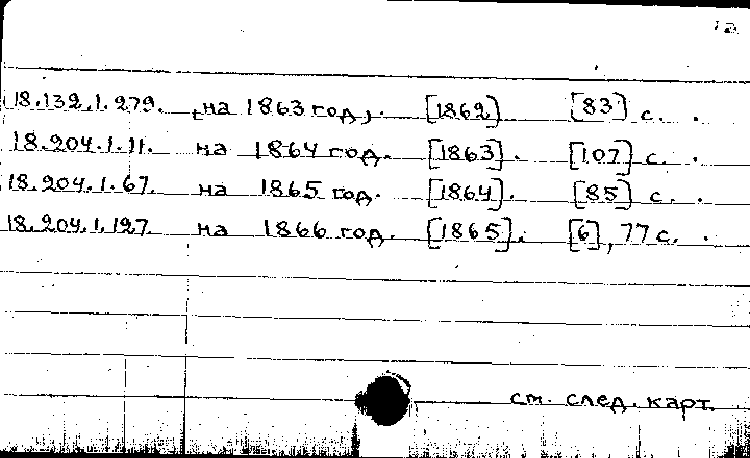 18.132.1.279. на 1863 год,. [1862] [83] с.
18.204.1.11. на 1864 год. [1863]. [107] с.
18.204.1.67. на 1865 год. [1864]. [85] с.
18.204.1.127. на 1866 год. [1865]. [6], 77 с.
см. след. карт.